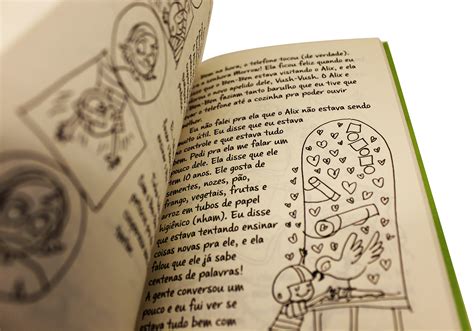 Bem na hora, o telefone tocou (de verdade).
a senhora Murrow! Ela ficou feliz quando eu
que o Ben-Ben estava visitando o Alix, e
o novo apelido dele, Vush-Vush. O Alix e
Ben-Ben faziam tanto barulho que eu tive que
o telefone até a cozinha pra poder ouvir
Eu não falei pra ela que o Alix não estava sendo
Eu disse que eu estava
no controle e que estava tudo
bem. Pedi pra ela me falar um
pouco dele. Ela disse que ele
tem 10 anos. Ele gosta de
sementes, nozes, pão,
frango, vegetais, frutas e
arroz em tubos de papel
higiênico (nham). Eu disse
que estava tentando ensinar
coisas novas pra ele, e ela
falou que ele já sabe
centenas de palavras!
A gente conversou um
pouco e eu fui ver se
estava tudo bem com